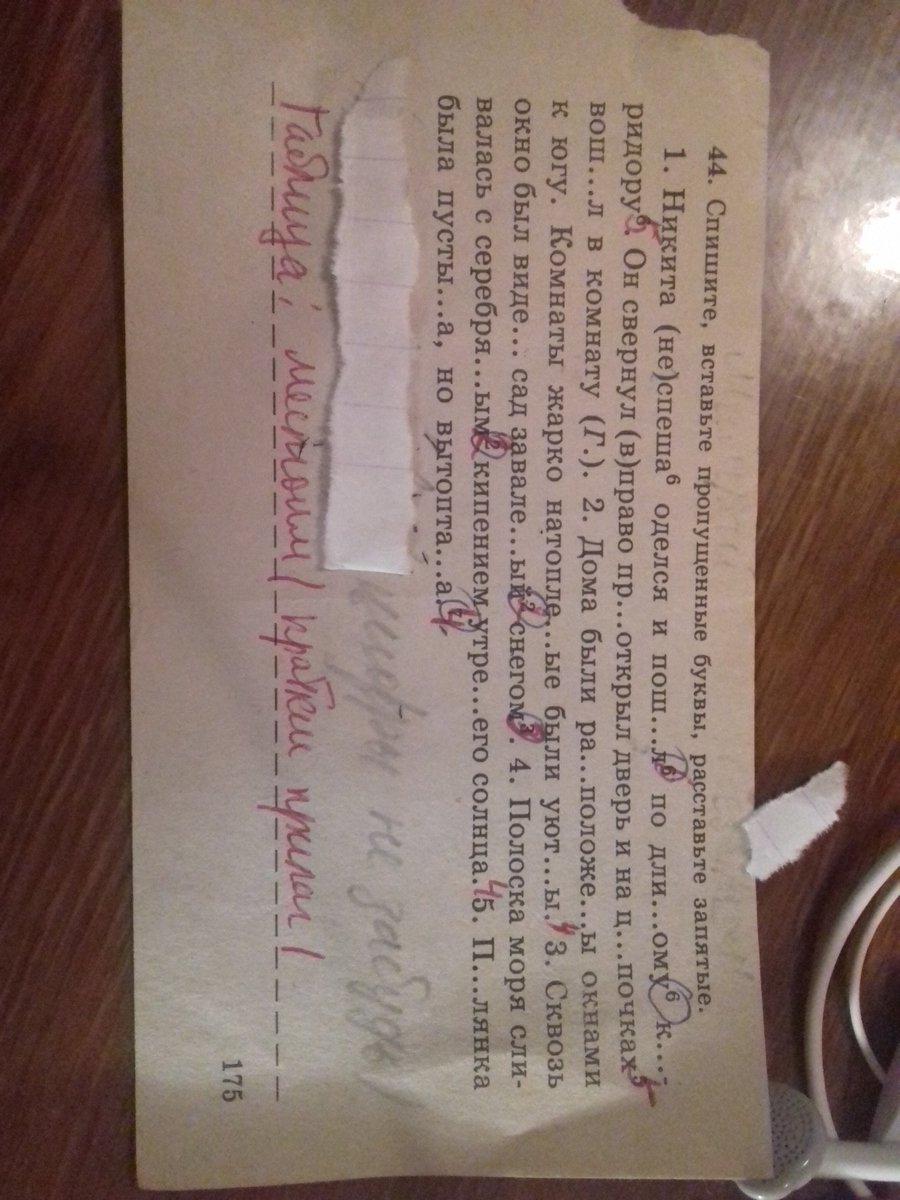 44. Спишите, вставьте пропущенные буквы, расставьте запятые.
1. Никита (не)спеша⁶ оделся и пош...л⁶ по дли...ому⁶ к...-
ридору⁶. Он свернул (в)право пр...открыл дверь и на ц...почках⁵
вош...л в комнату (Г.). 2. Дома были ра...положе...ы окнами
к югу. Комнаты жарко натопле...ые были уют...ы.⁴ 3. Сквозь
окно был виде... сад завале...ый² снегом³. 4. Полоска моря сли-
валась с серебря...ым² кипением утре...его солнца.⁴ 5. П...лянка
была пусты...а, но вытопта...а.⁴
цифры не забудь)
Таблица; местоим / кратки прилаг /
175